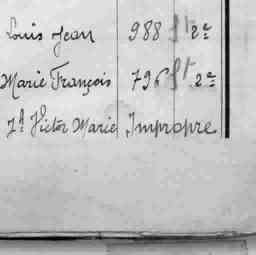 Louis Jean 988 st 2e
Marie François 796 st 2e
Jd Victor Marie Impropre